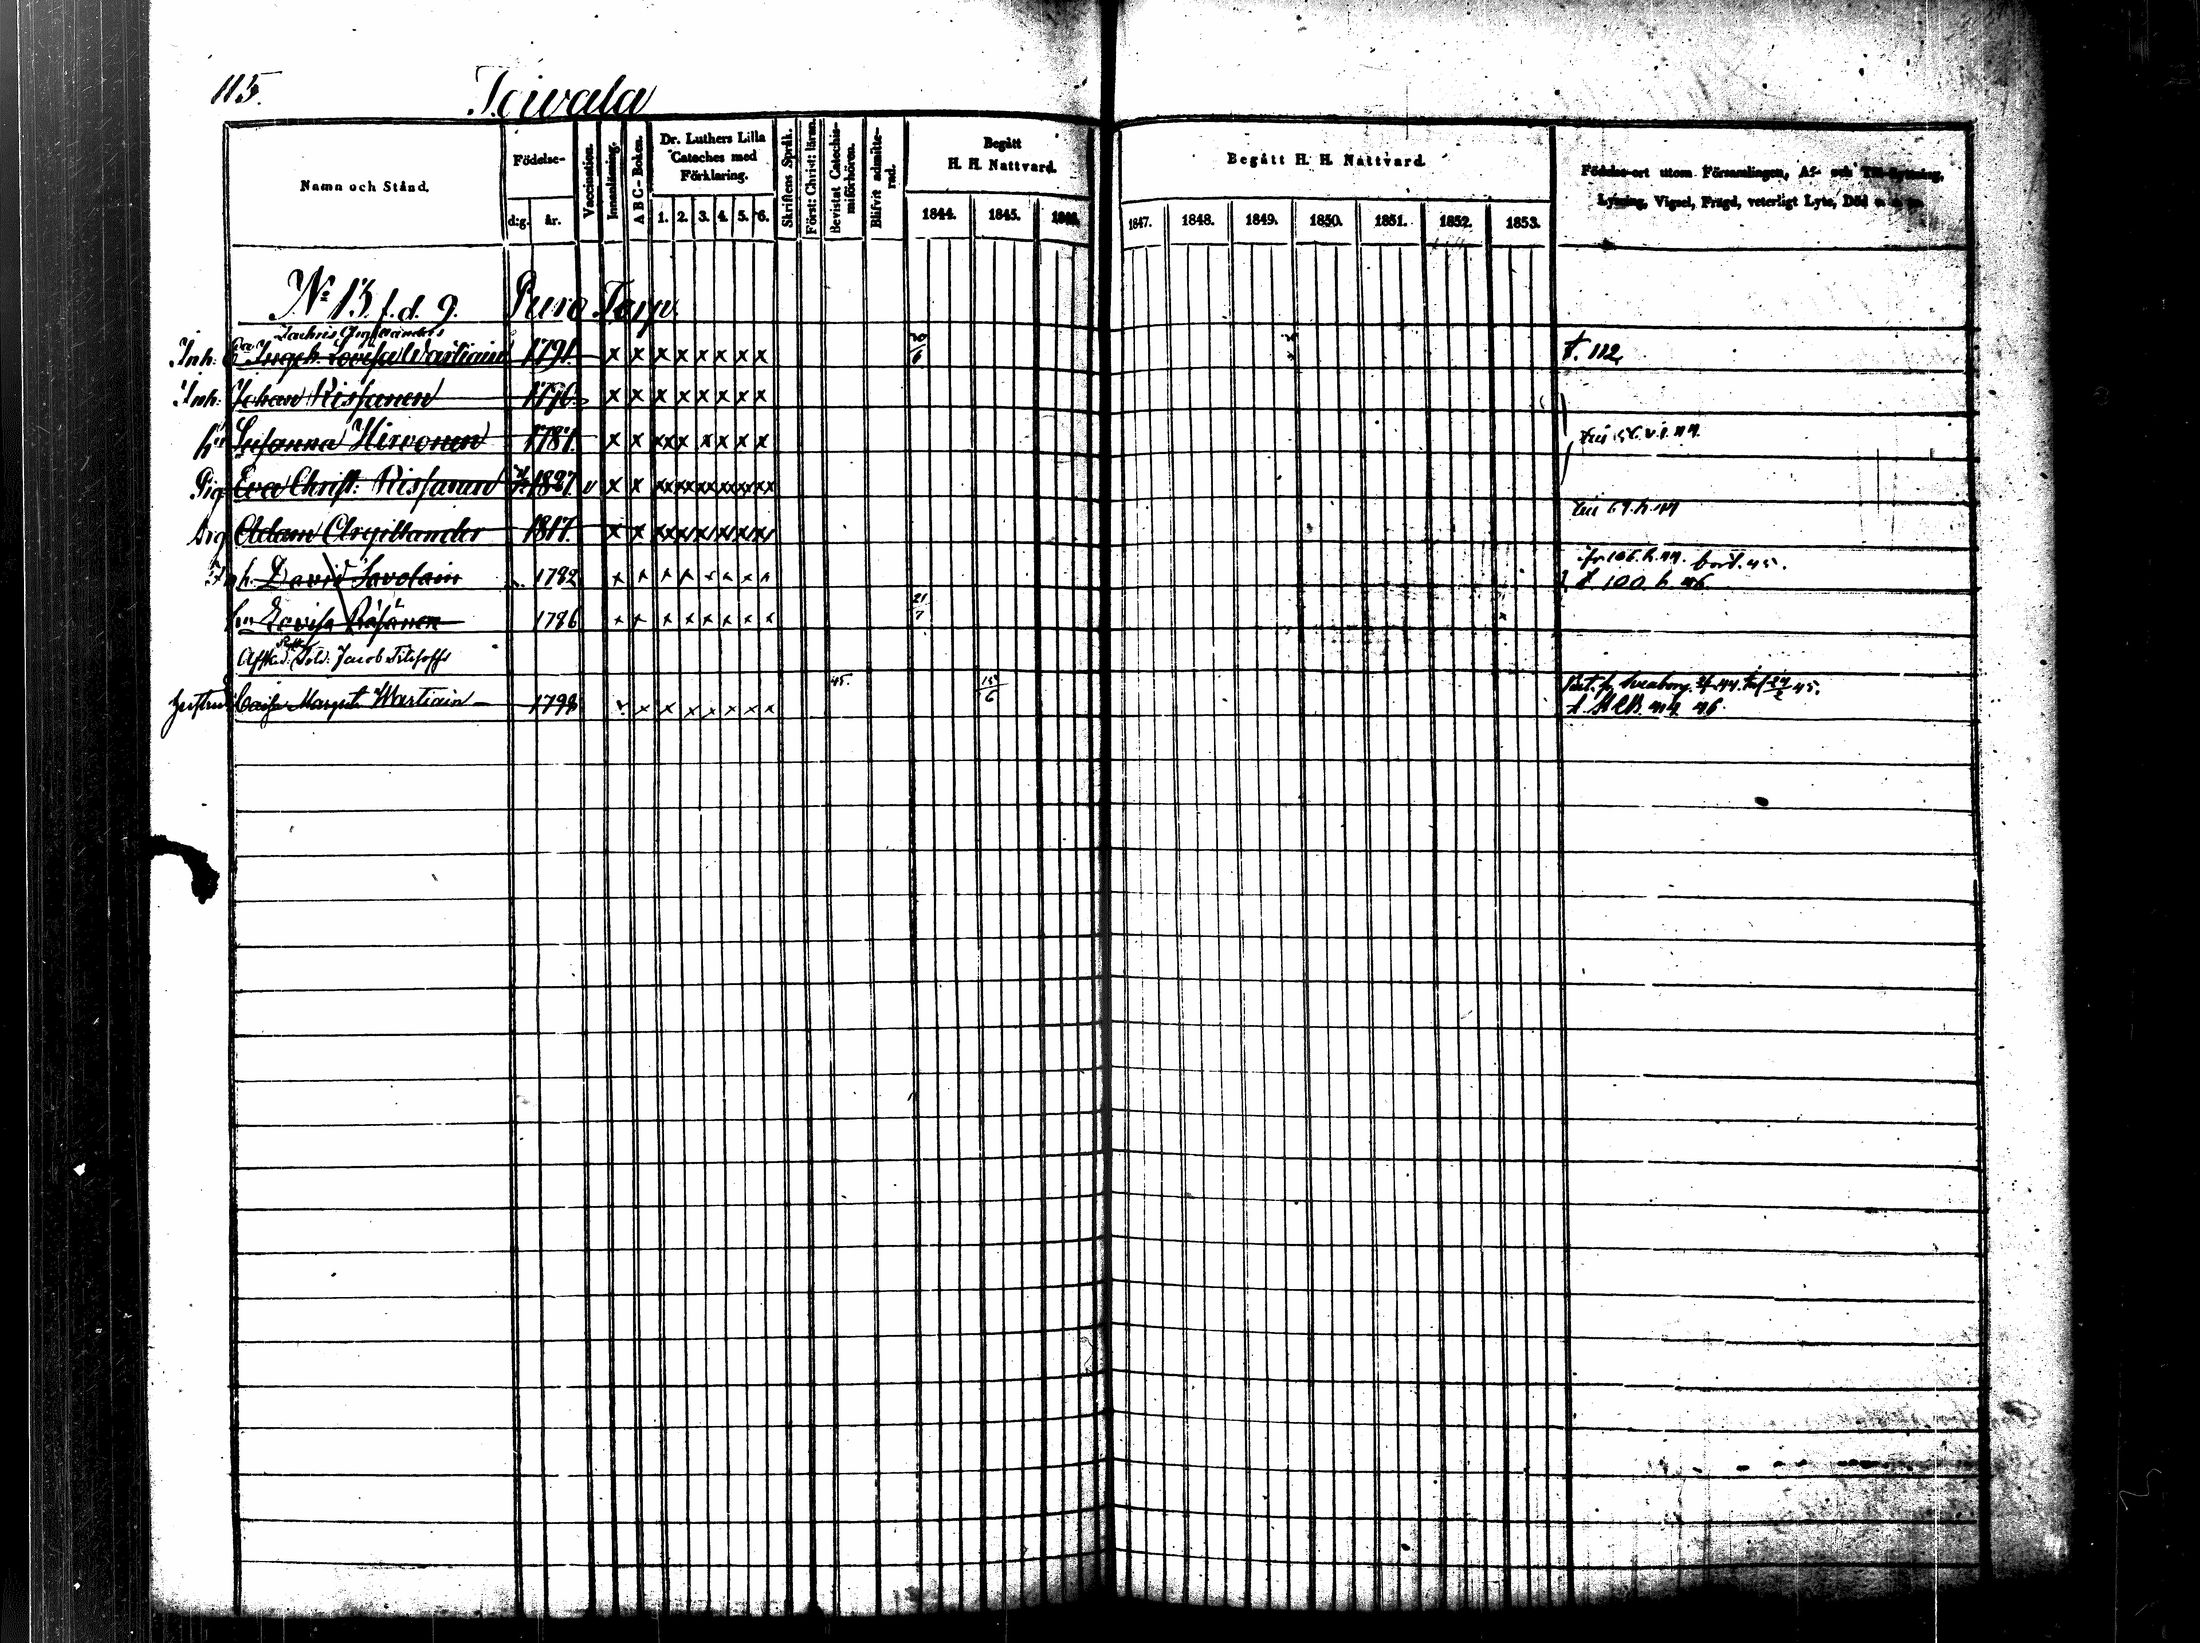 115.
Toivala
Namn och Stånd.
Födelse-
d:g.
år.
Vaccination.
Innanläsning.
A B C-Boken.
Dr. Luthers Lilla
Cateches med
Förklaring.
1. 2. 3. 4. 5. 6.
Skriftens Språk.
Först: Christ: lärm.
Bevistat Catechis-
miförhören.
Blifvit admitte-
rad.
Begått
H. H. Nattvard.
1844. 1845. 1846.
Begått H. H. Nattvard.
1847. 1848. 1849. 1850. 1851. 1852. 1853.
Födelse-ort utom Församlingen, Af- och Till-flyttning,
Lysning, Vigsel, Frägd, veterligt Lyte, Död m. m.
No 13 f.d. 9. Puro Torp.
Inh: Ingeb. Lovisa Wartiain 1791. x x x x x x x x 112
Inh: Johan Rissanen 1796 x x x x x x x x
hu Susanna Hirvonen 1781. x x xxx x x x x
Pig Eva Christ: Rissanen 1827. v x x
Drg Adam Argillander 1817. x x
Inh. David Savolain 1782 x x x x x x x x 106.h.44. bort.45.
100.h.46
hu Lovisa Räsänen 1786 x x x x x x x x 21/7
Sold. Jacob
hustru Caisa Margeta Wartiain 1798 x x x x x x x x 45. 15/6 45.
46.